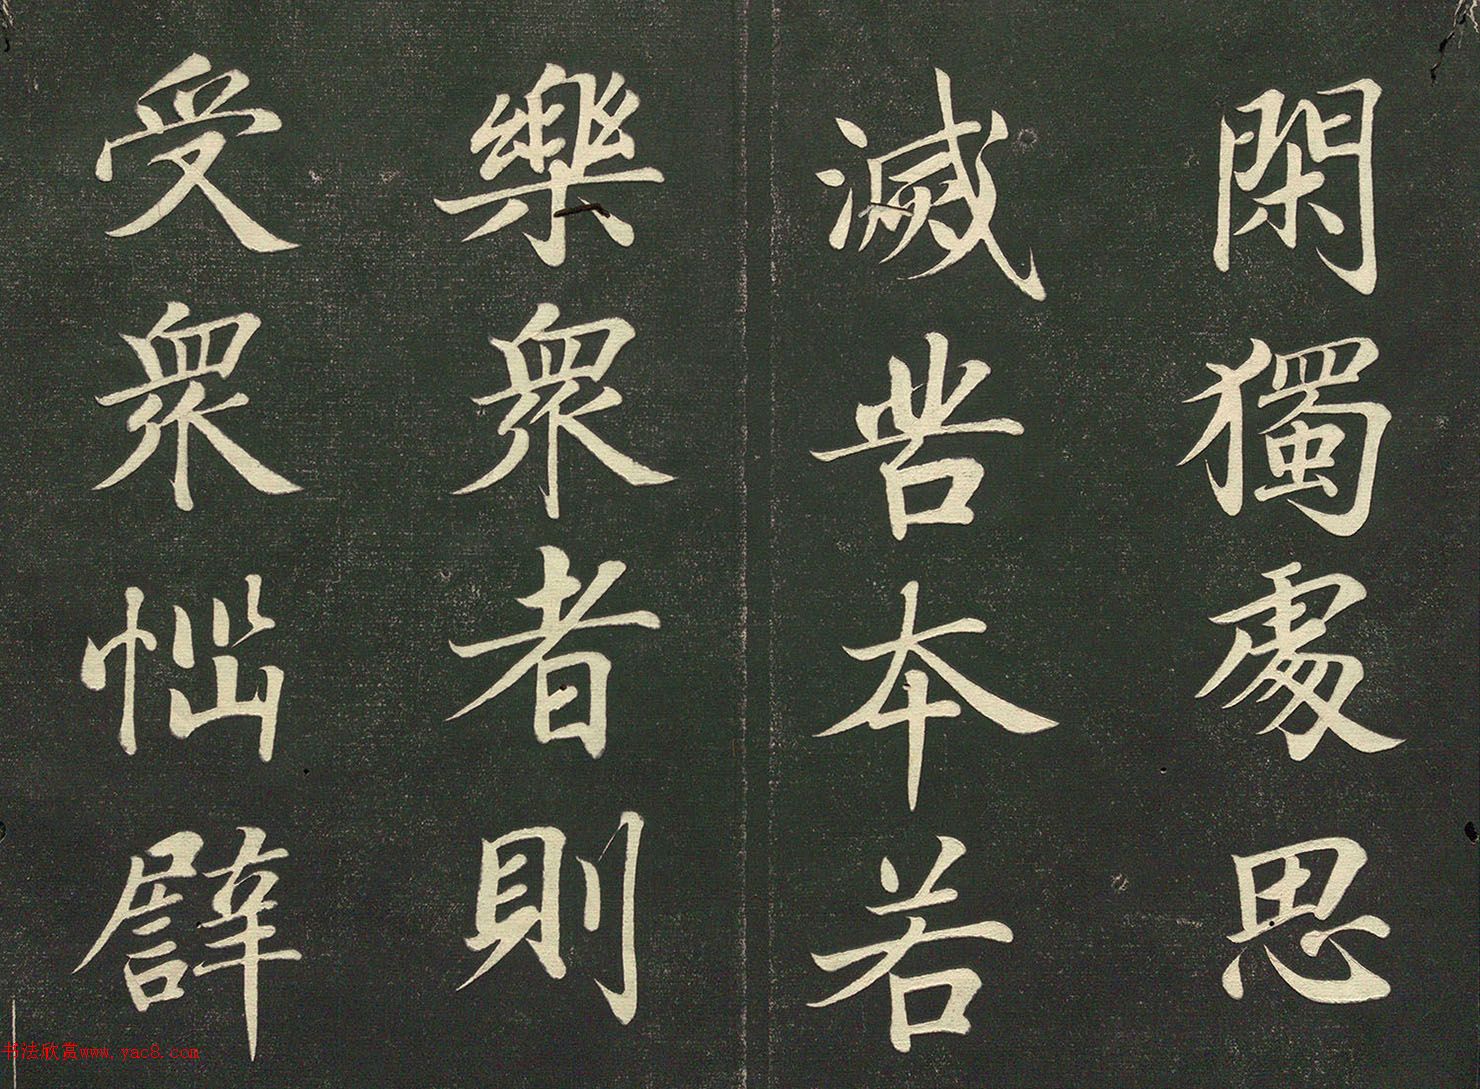 閑獨處思
滅苦本若
樂衆者則
受衆惱譬
书法欣赏www.yac8.com